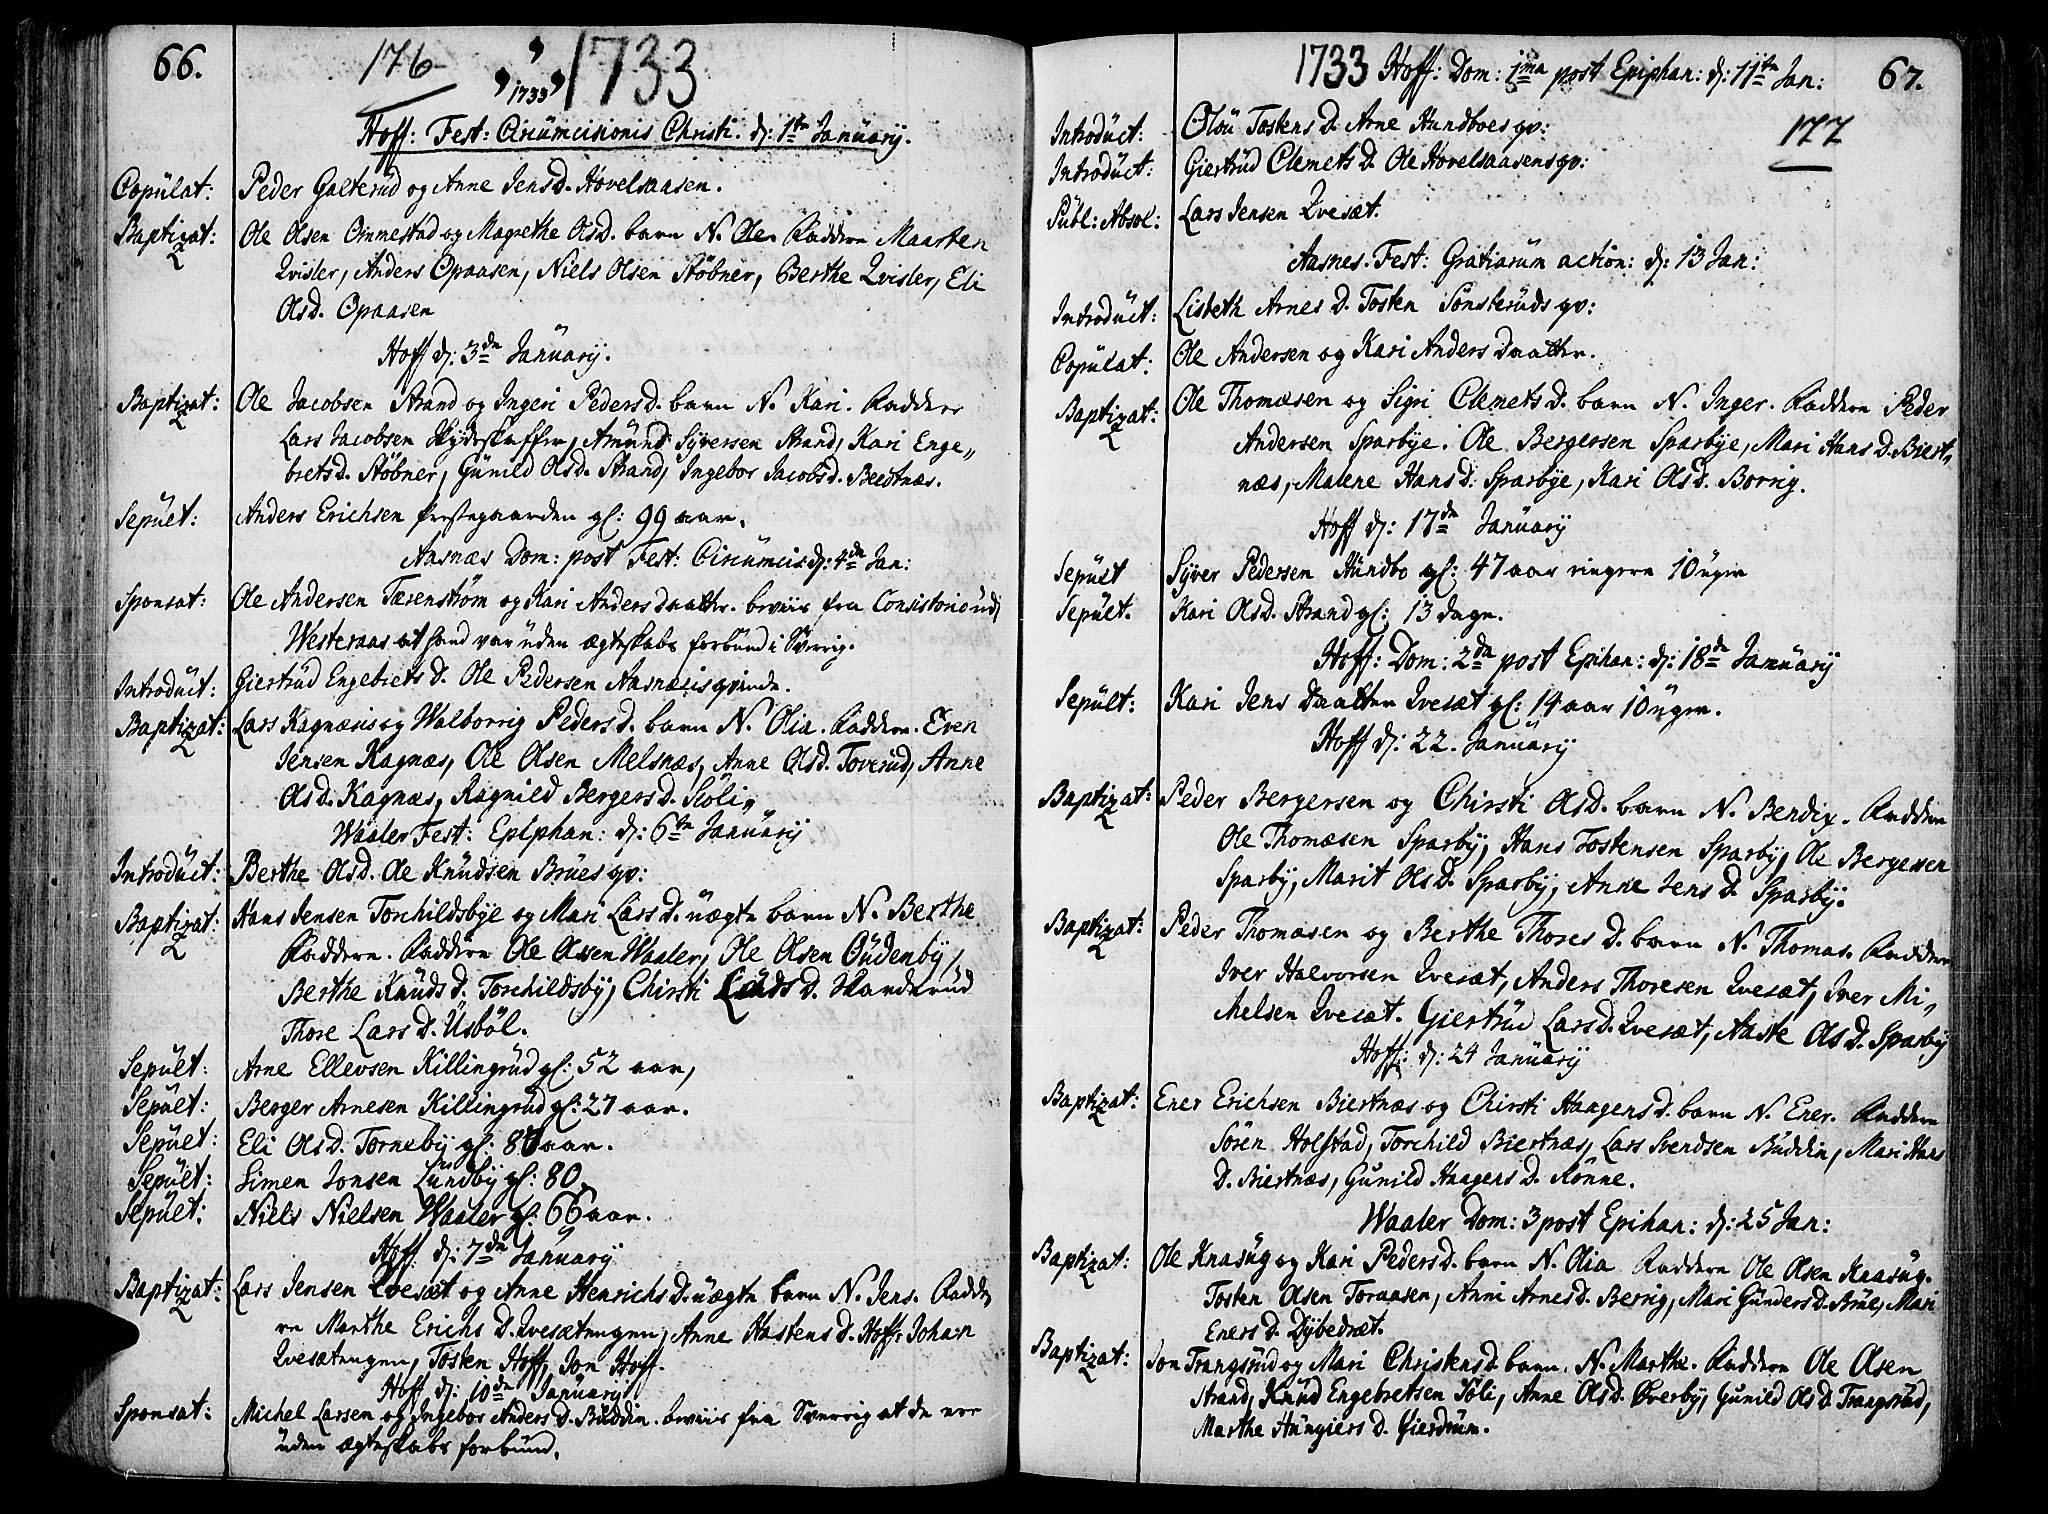 66.
176
1733
1733
Hoff: Fest: Circumcisionis Christi. d: 1te Januarij.
Copulat: Peder Galterud og Anne JensD. Hovelsaasen.
Baptizat: Ole Olsen Ommestad og Magrethe OlsD. barn N. Ole. Faddere Maarten
Qvisler, Anders Opaasen, Niels Olsen Støbner, Berthe Qvisler, Eli
OlsD. Opaasen
Hoff d: 3de Januarij.
Baptizat: Ole Jacobsen Strand og Ingeri PedersD. barn N. Kari. Faddere
Lars Jacobsen Skydeskaffer, Amund Syversen Strand, Kari Enge„
bretsD. Støbner, Gunild OlsD. Strand, Ingebor JacobsD.
Sepult: Anders Erichsen Prestegaarden gl: 99 aar.
Aasnæs Dom: post Fest: Circumcis: d: 4de Jan:
Sponsat: Ole Andersen Tærenstrøm og Kari Andersdaatter. beviis fra Consistorio udi
Westeraas at hand var uden ægteskabs forbund i Sverrig.
Introduct: Giertrud EngebretsD. Ole Pedersen Aasnæsis qvinde.
Baptizat: Lars Kagnæs og Walborrig PedersD. barn N. Olia. Faddere. Even
Jensen Kagnæs, Ole Olsen Melsnæs, Anne OlsD. Toverud, Anne
OlsD. Kagnæs, Ragnild BergersD. Sioli„
Waaler Fest: Epiphan: d: 6te Januarij
Introduct: Berthe OlsD. Ole Knudsen Brues qv:
Baptizat: Hans Jensen Torchildsbye og Mari LarsD. uægte barn N. Berthe
Faddere. Faddere Ole Olsen Waaler, Ole Olsen Gudenby,
Berthe KnudsD. Torchildsby, Chirsti D. Skanderud
Thore LarsD. Usbøl.
Sepult: Arne Ellevsen Killingrud gl: 52 aar,
Sepult: Berger Arnesen Killingrud gl: 27 aar.
Sepult: Eli OlsD. Torneby gl: aar.
Sepult: Simen Jonsen Lundby gl: 80.
Sepult: Niels Nielsen Waaler gl: 66 aar.
Hoff d: 7de Januarij
Baptizat: Lars Jensen Qvesæt og Anne HenrichsD. uægte barn N. Jens. Fadde
re Marthe ErichsD. Qvesætengen, Anne HastensD. Hoff, Johan
Qvesætengen, Tosten Hoff, Jon Hoff.
Hoff d: 10de Januarij
Sponsat: Michel Larsen og Ingebor AndersD. Buddin. beviis fra Sverrig at de vor
uden ægteskabs forbund.
1733 Hoff: Dom: 1ma post Epiphan: d: 11te Jan: 67.
177
Introduct: Olou TostensD. Arne Hundboes qv:
Introduct: Giertrud ClemetsD. Ole Hovelsaasens qv:
Publ: Absol: Lars Jensen Qvesæt.
Aasnes. Fest: Gratiarum action: d: 13 Jan:
Introduct: Lisbeth ArnesD. Tosten Sønsteruds qv:
Copulat: Ole Andersen og Kari Andersdaatter.
Baptizat: Ole Thomæsen og Sigri ClemetsD. barn N. Inger. Faddere Peder
Andersen Sparbye. Ole Bergersen Sparbye, Mari HansD. Biert„
næs, Malene HansD. Sparbye, Kari OlsD. Borrig.
Hoff d: 17de Januarij
Sepult Syver Pedersen Hundbo gl: 47 aar ringere 10 uger
Sepult. Kari OlsD. Strand gl: 13 dage.
Hoff: Dom: 2da post Epihan: d: 18de Januarij
Sepult: Kari Jens Daatter Qvesæt gl: 14 aar 10 uger.
Hoff d: 22. Januarij
Baptizat: Peder Bergersen og Chirsti OlsD. barn N. Berdix. Faddere
Ole Thomæsen Sparby, Hans Tostensen Sparby, Ole Bergersen
Sparby, Marit OlsD. Sparby, Anne JensD. Sparby.
Baptizat: Peder Thomasen og Berthe ThoresD. barn N. Thomas. Faddere
Iver Halvorsen Qvesæt, Anders Thoresen Qvesæt, Iver Mi„
chelsen Qvesæt. Giertrud LarsD. Qvesæt, Aaste OlsD. Sparby
Hoff: d: 24 Januarij
Baptizat: Ener Erichsen Biertnæs og Chirsti HaagensD. barn N. Ener. Faddere
Sören Holstad, Torchild Biertnæs, Lars Svendsen Buddin, Mari Hans
D. Biertnæs, Gunild HaagensD. Rønne.
Waaler Dom: 3 post Epihan: d: 25 Jan:
Baptizat: Ole Knasug og Kari PedersD. barn N. Olia Faddere Ole Olsen Knasug.
Tosten Olsen Toraasen, Anni ArnesD. Berrig, Mari GundersD. Brue, Mari
EnersD. Dybedræt.
Baptizat: Jon Trangsrud og Mari ChristensD. barn. N. Marthe. Faddere Ole Olsen
Strand, Knud Engebretsen Soli, Anne OlsD. Øverby, Gunild OlsD. Trangsrud,
Marthe D. Gierdrum.